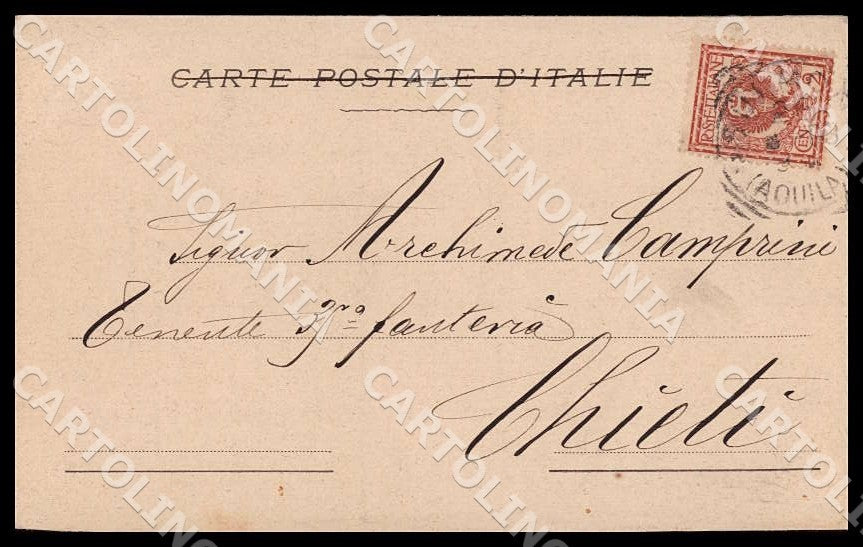 CARTE POSTALE D'ITALIE
POSTE ITALIANE
CEN. 2
(AQUILA)
Signor Archimede Camprini
Tenente fanteria
Chieti
CARTOLINOMANIA
CARTOLINOMANIA
CARTOLINOMANIA
CARTOLINOMANIA
CARTOLINOMANIA
CARTOLINOMANIA